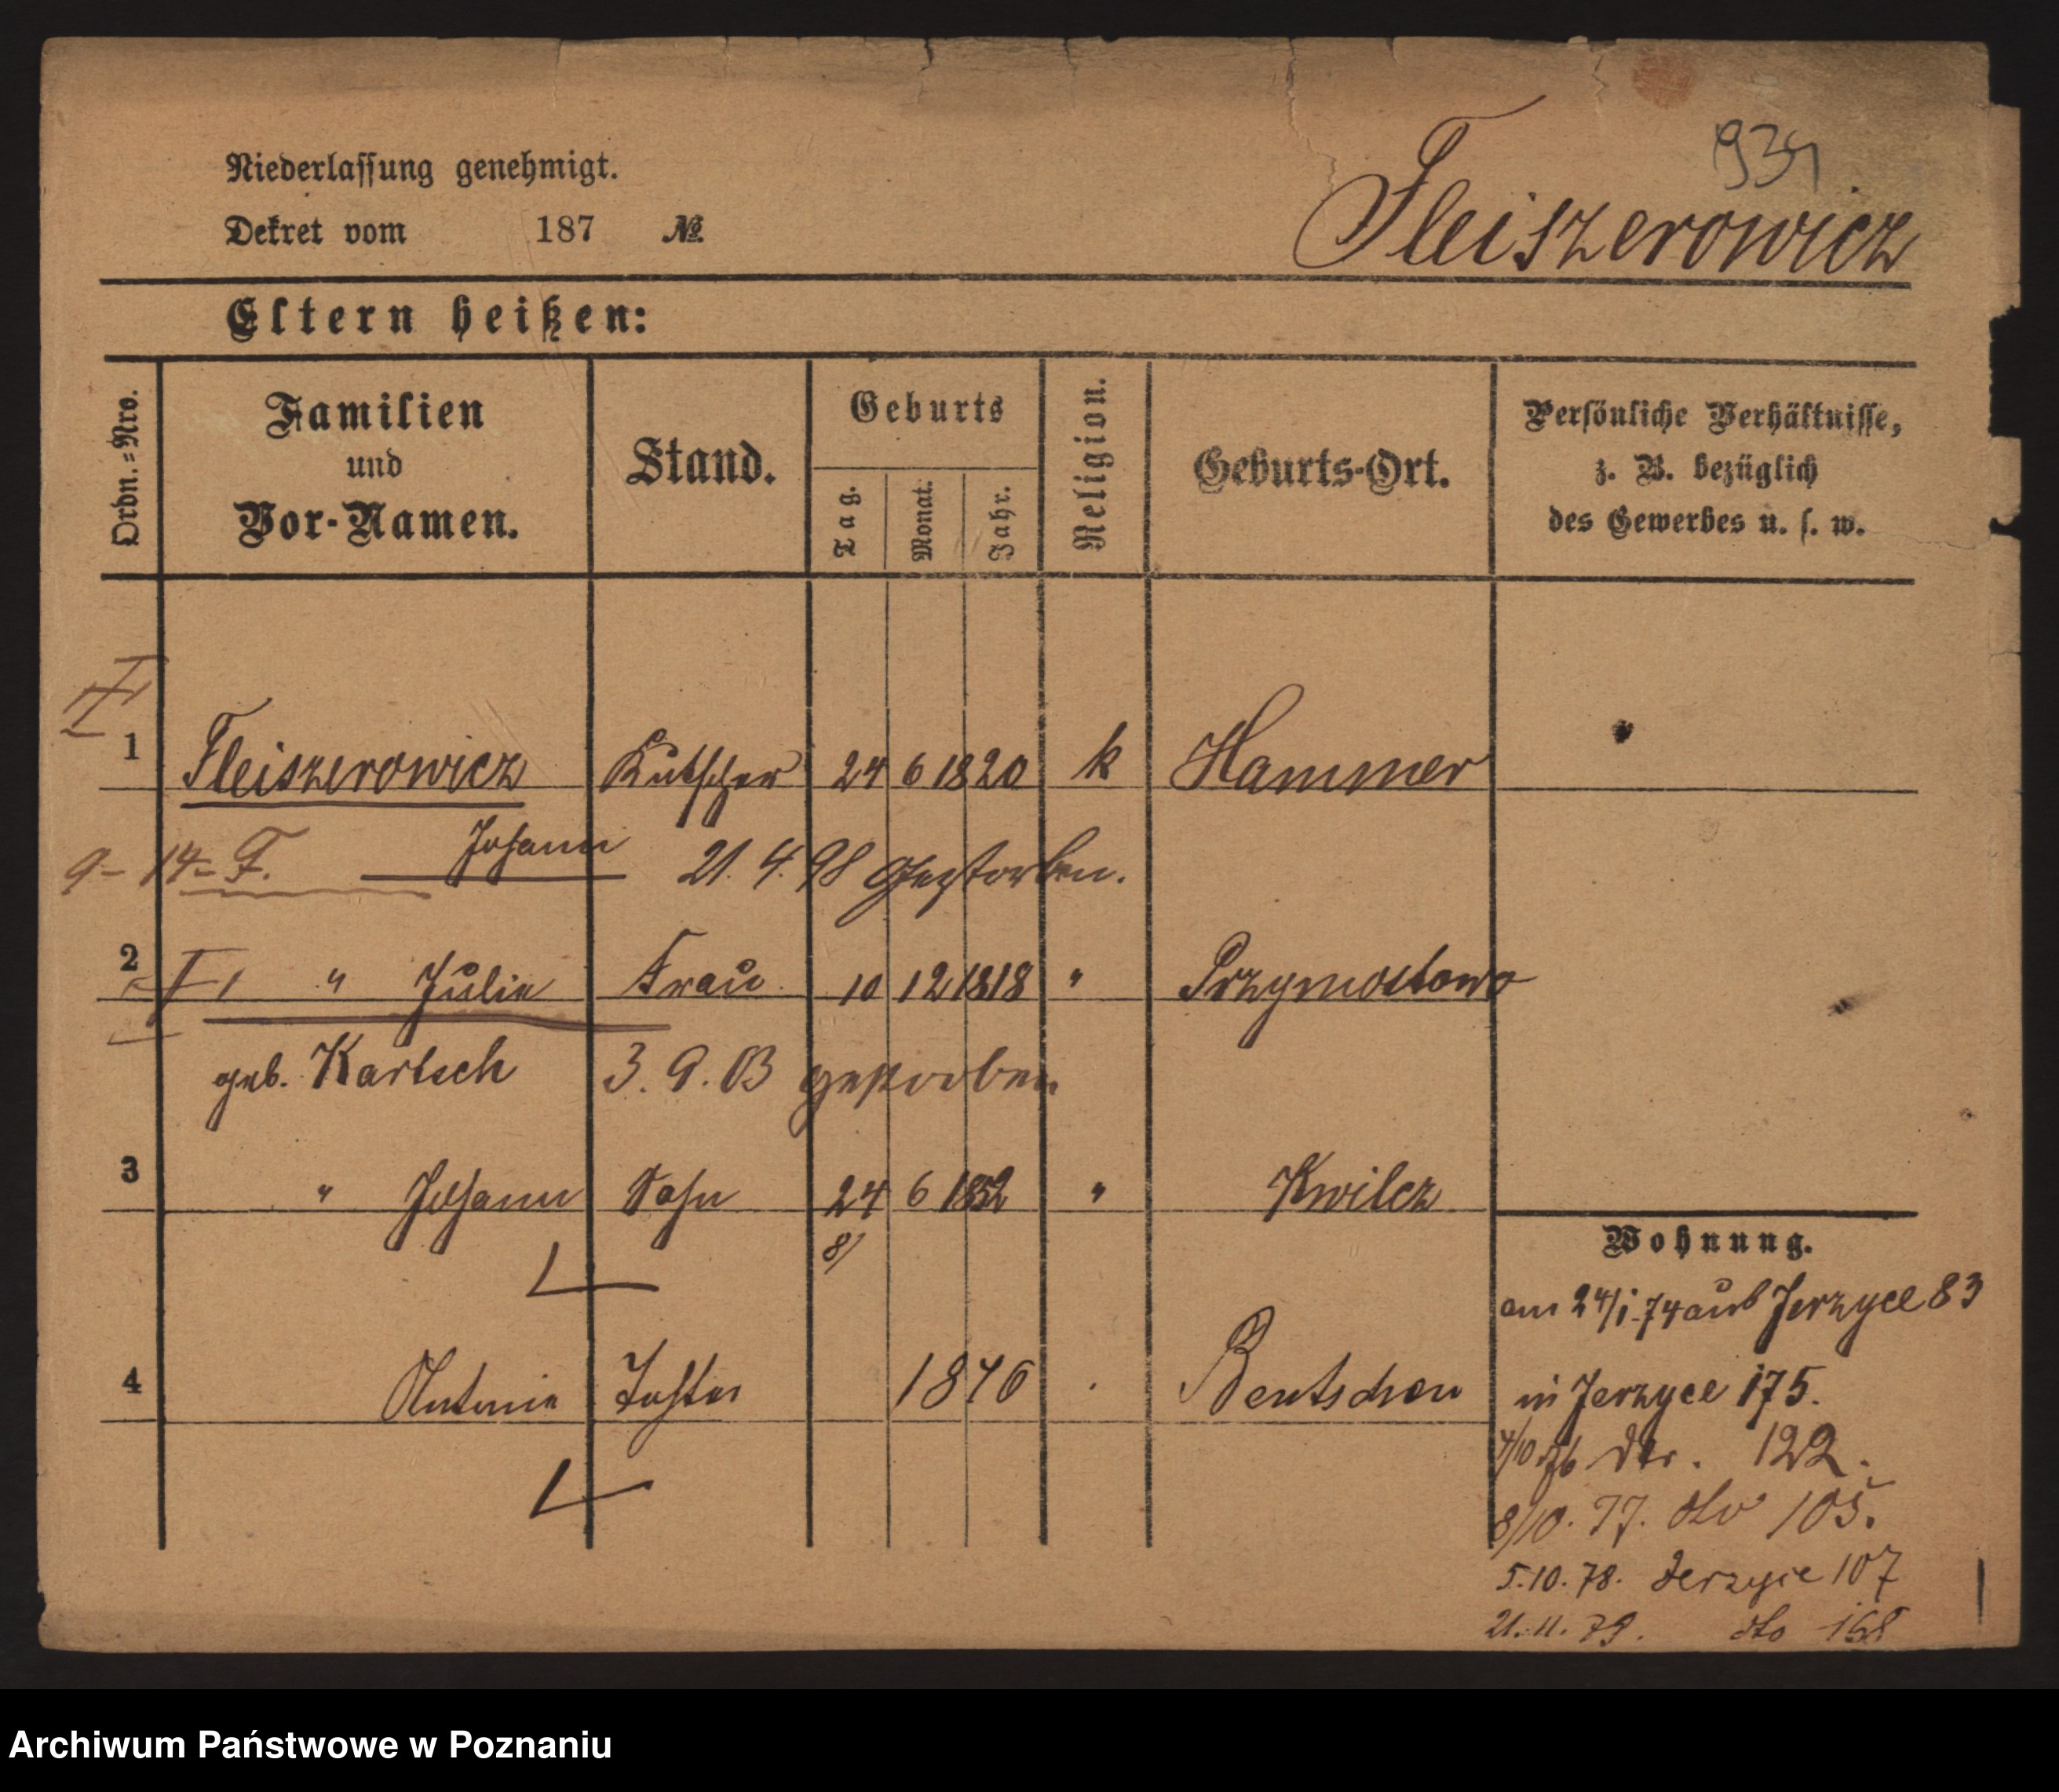 939
Niederlassung genehmigt.
Dekret vom 187 №
Fleiszerowicz
Eltern heißen:
Ordn.=Nro.
Familien
und
Vor-Namen.
Stand.
Geburts
Tag.
Monat.
Jahr.
Religion.
Geburts-Ort.
Persönliche Verhältnisse,
z. B. bezüglich
des Gewerbes u. s. w.
1 Fleiszerowicz Kutscher 24 6 1820 k Hammer
9- 14- F. Johann 21. 4. 98 Gestorben.
2 " Julie Frau 10 12 1818 " Przymostowo
geb. Kartsch 3. 9. 03 gestorben
3 " Johann Sohn 24 6 1852 " Kwilcz
8/
Wohnung.
am 24/1. 74 aus Jerzyce 83
4 Antonie Tochter 1846 Bentschen
in Jerzyce 175.
4/10 76 122.
8/10. 77. dto 105.
5.10.78. Jerzyce 107
21.11.79. dto 168
Archiwum Państwowe w Poznaniu